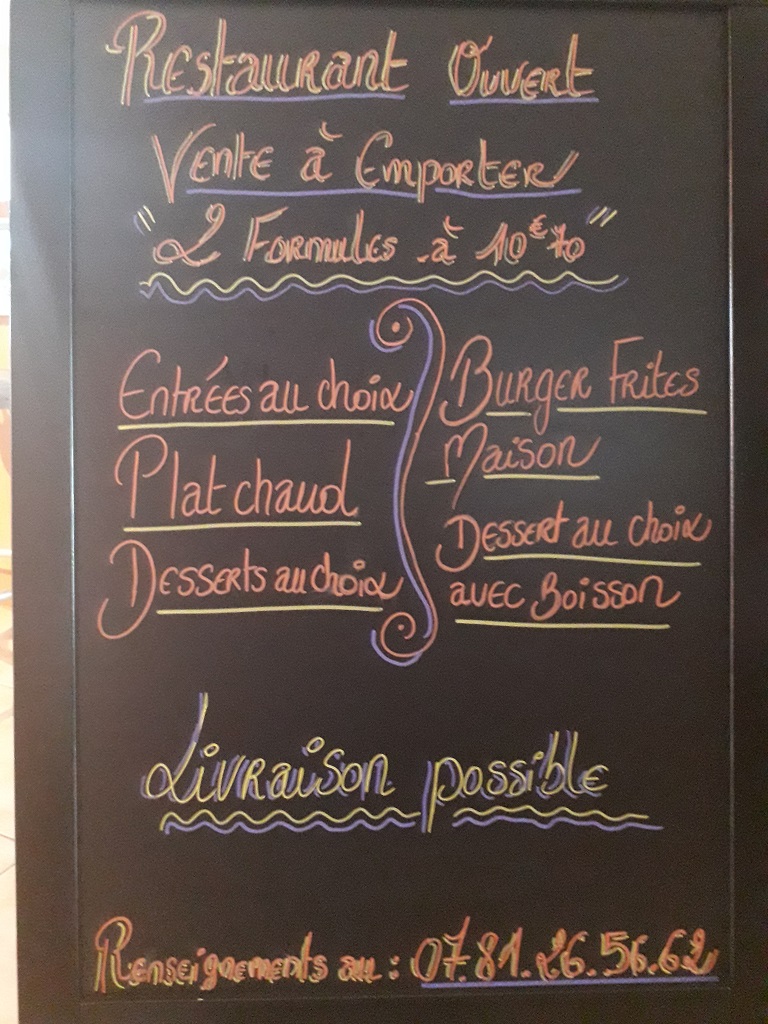 Restaurant Ouvert
Vente à Emporter
"2 Formules à 10€70"
Entrées au choix
Plat chaud
Desserts au choix
Burger Frites
Maison
Dessert au choix
avec Boisson
Livraison possible
Renseignements au : 07.81.26.56.62